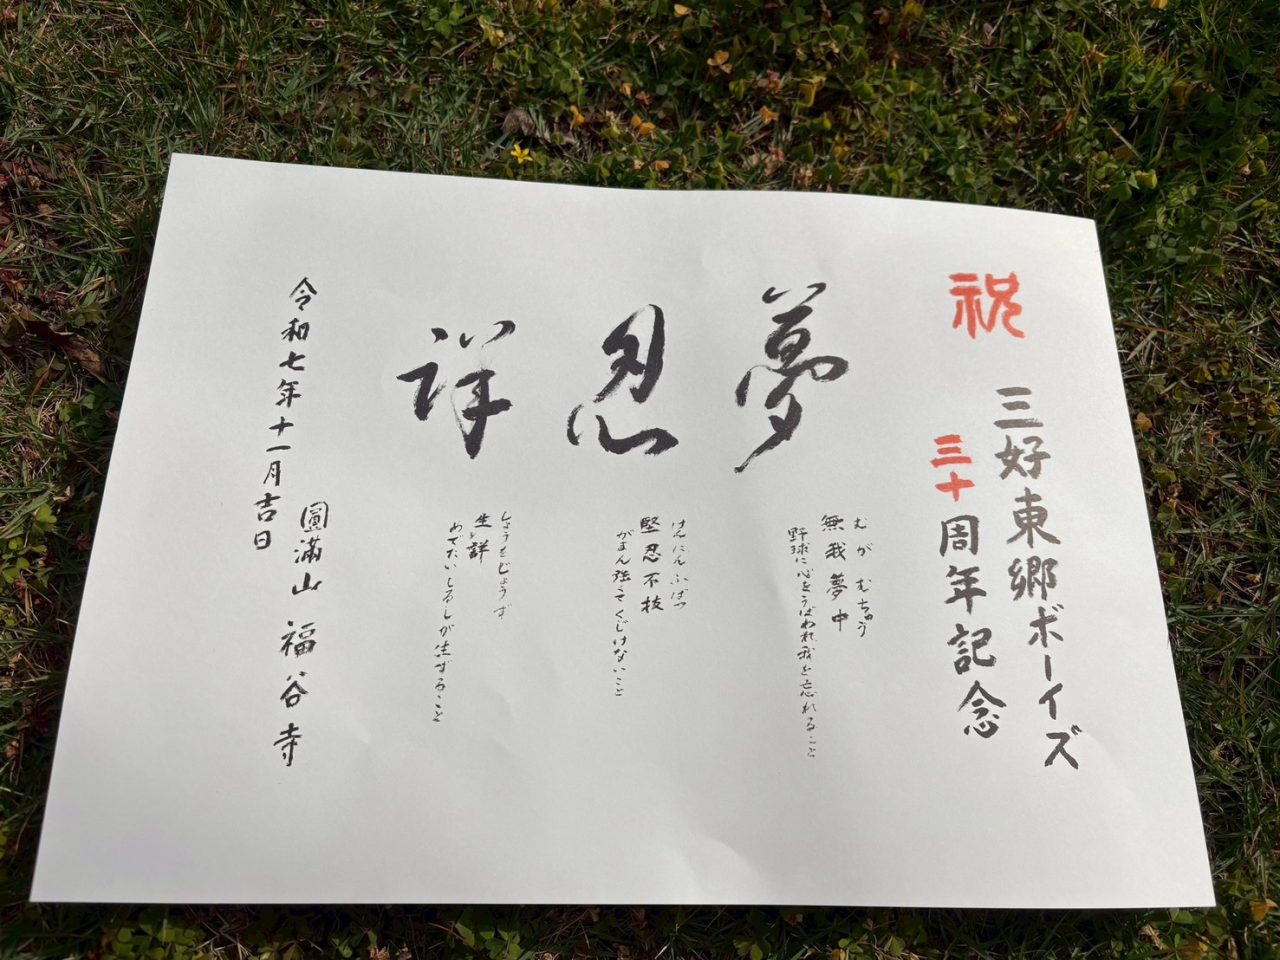 祝
三好東郷ボーイズ
三十周年記念
夢
むがむちゅう
無我夢中
野球に心をうばわれ我を忘れること
忍
けんにんふばつ
堅忍不抜
がまん強くてくじけないこと
祥
しょうをじょうず
生じ祥
めでたいしるしが生ずること
令和七年十一月吉日
圓満山 福谷寺